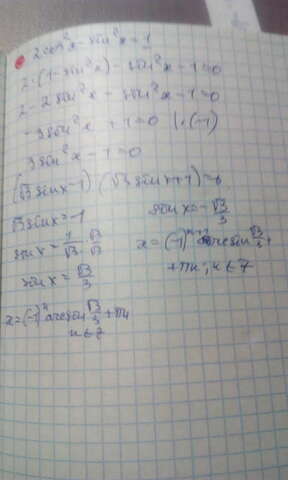 2cos²x - sin²x = 1
2·(1 - sin²x) - sin²x - 1 = 0
2 - 2sin²x - sin²x - 1 = 0
-3sin²x + 1 = 0 |·(-1)
3sin²x - 1 = 0
(√3 sinx - 1)(√3 sinx + 1) = 0
√3 sinx = 1
sinx = 1/√3 · √3/√3
sinx = √3/3
x = (-1)ⁿ arcsin √3/3 + πn
n ∈ Z
sinx = -√3/3
x = (-1)ⁿ⁺¹ arcsin √3/3 +
+ πn; n ∈ Z